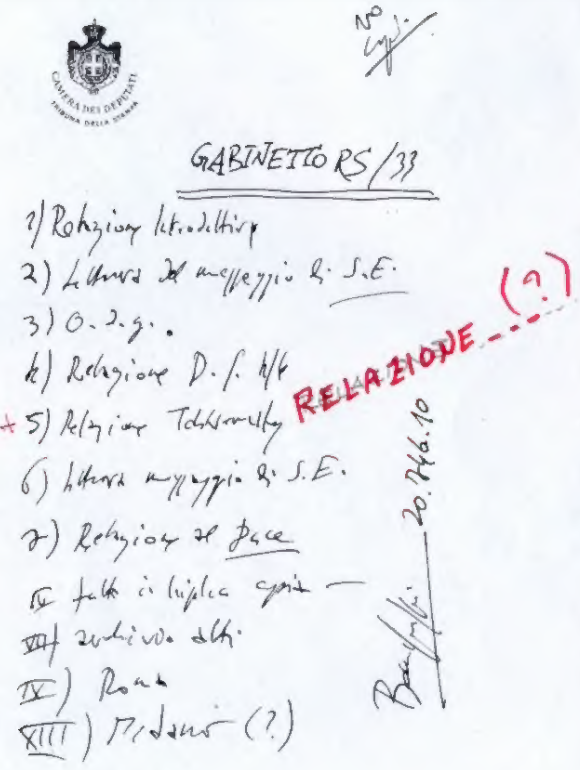 CAMERA DEI DEPUTATI
TRIBUNA DELLA STAMPA
Nº
GABINETTO RS/33
1) Relazione Introduttiva
2) Lettura del messaggio di S.E.
3) O.d.g.
4) Relazione D.
RELAZIONE ---- (?)
+ 5) Relazione
6) Lettura messaggio di S.E.
7) Relazione al Duce
IV fatto in triplice copia —
VII) archivio atti
IX) Roma
XIII) Milano (?)
20. 10